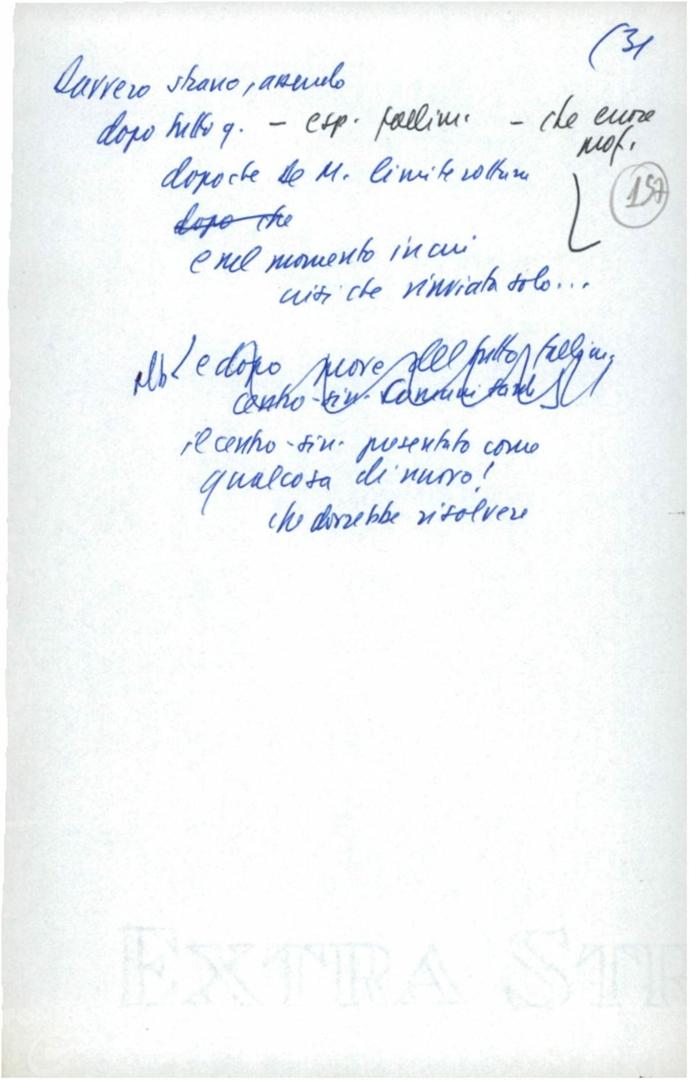 (3)
Davvero strano, assurdo
dopo tutto q. – esp. fallim. – che ancora
prof.
dopo che De M. limite rottura
157
dopo che
e nel momento in cui
crisi che rinviata solo...
e dopo prove del tutto fallim.
centro-sin.
il centro-sin. presentato come
qualcosa di nuovo!
che dovrebbe risolvere
EXTRA STR